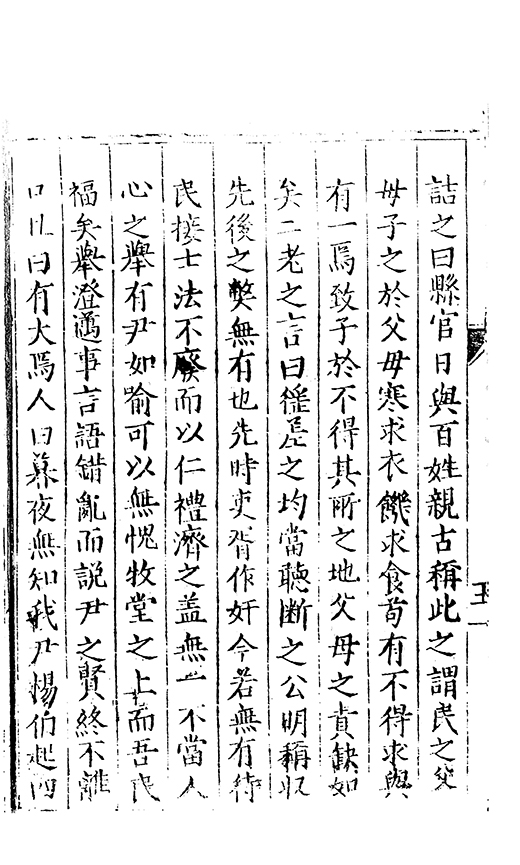 詰之曰縣官日與百姓親古稱此之謂民之父
母子之於父母寒求衣饑求食苟有不得求與
有一焉致子於不得其所之地父母之責缺如
矣二老之言曰徭差之均當聽斷之公明稱收
先後之獘無有也先時吏胥作奸今若無有待
民接士法不廢而以仁禮濟之盖無一不當人
心之舉有尹如喻可以無愧牧堂之上而吾民
福矣舉澄邁事言語錯亂而説尹之賢終不離
口且曰有大焉人曰暮夜無知我尹楊伯起四